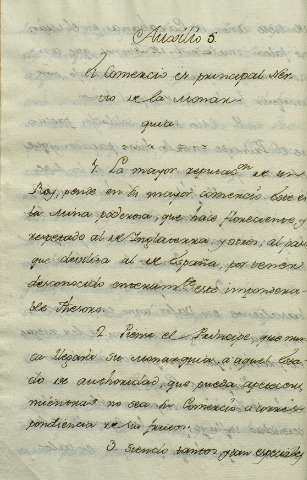 Auxilio 5.
El Comercio es principal Ner
vio de la Monar
quia
1. La mayor reputaon de un
Rey, pende en la mayor comercio: este es
la Mina poderosa, que hace floreciente, y
respetado al de Inglaterra y otros, al paso
que debilita al de España, por tener
desconocido enteramte este imponderable
ble Thesoro.
2. Piense el Principe, que nun
ca llegará su Monarquia, a aquel Esta
do de authoridad, que pueda apetecer,
mientras no sea su Comercio a corres
pondiencia de sus frutos.
3. Siendo tantos, y tan especiales